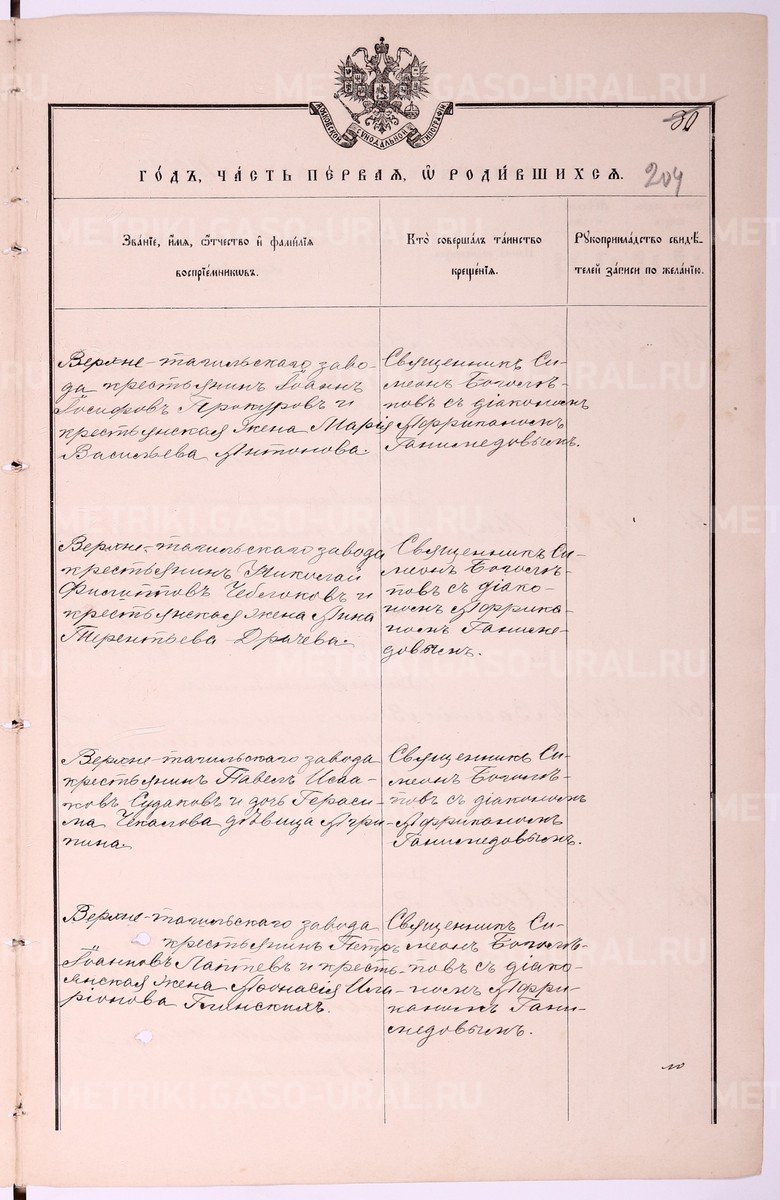 МОСКОВСКОЙ СѴНОДАЛЬНОЙ ТИПОГРАФІИ
30
ГО́ДЪ, ЧА́СТЬ ПЕ́РВАЯ, Ѡ҆ РОДИ́ВШИХСЯ.
204
Зва́нїе, и҆́мя, ѻ҆́тчество и҆ фами́лїя
воспрїе́мниковъ.
Кто̀ соверша́лъ та́инство
креще́нїя.
Рꙋкоприкла́дство свидѣ́-
телей за́писи по жела́нїю.
Верхне-тагильскаго заво-
да крестьянинъ Іоаннъ
Іосифовъ Прокуровъ и
крестьянская жена Марія
Васильева Антонова.
Священникъ Си-
меонъ Боголѣ-
повъ съ діакономъ
Африканомъ
Ганимедовымъ.
Верхне-тагильскаго завода
крестьянинъ Николай
Филипповъ Чеблоковъ и
крестьянская жена Анна
Терентьева Драчева.
Священникъ Си-
меонъ Боголѣ-
повъ съ діако-
номъ Африка-
номъ Ганиме-
довымъ.
Верхне-тагильскаго завода
крестьянинъ Павелъ Исаа-
ковъ Судаковъ и дочь Гераси-
ма Чекалова дѣвица Агри-
пина.
Священникъ Си-
меонъ Боголѣ-
повъ съ діакономъ
Африканомъ
Ганимедовымъ.
Верхне-тагильскаго завода
крестьянинъ Петръ
Іоанновъ Лаптевъ и кресть-
янская жена Афонасія Ила-
ріонова
Священникъ Си-
меонъ Боголѣ-
повъ съ діако-
номъ Афри-
каномъ Гани-
медовымъ.
METRIKI.GASO-URAL.RU